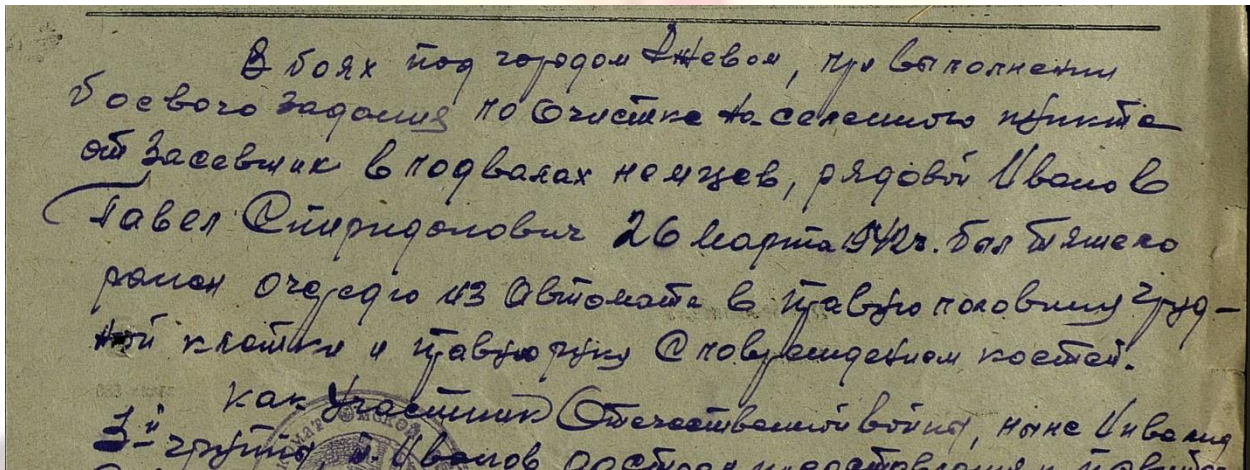 В боях под городом Ржевом, при выполнении
боевого задания по очистке населенного пункта
от засевших в подвалах немцев, рядовой Иванов
Павел Спиридонович 26 марта 1942 г. был тяжело
ранен очередью из автомата в правую половину груд-
ной клетки и правую руку с повреждением костей.
Как участник Отечественной войны, ныне инвалид
3й группы, т. Иванов достоин